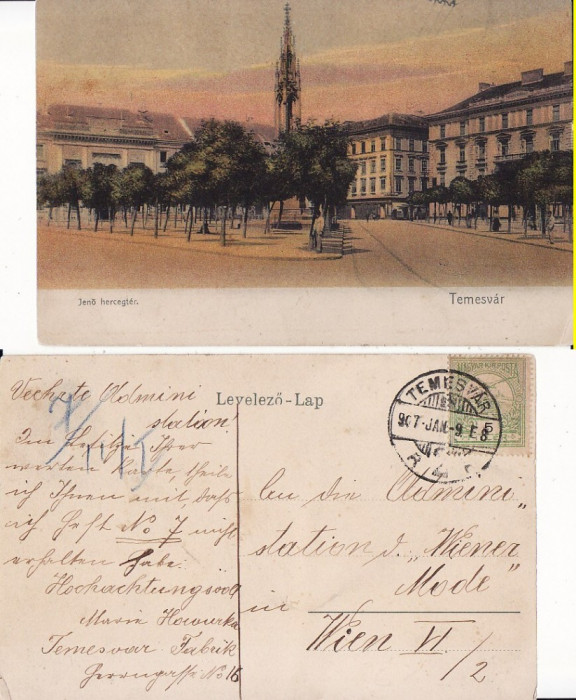 Jenő hercegtér.
Temesvár
Levelező-Lap
TEMESVÁR
907 JAN -9 E 8
MAGYAR KIR. POSTA
Vechrte Admini
station!
Im Besitze Ihrer
werten Karte theile
ich Ihnen mit, daß
ich Heft No 7 nicht
erhalten habe.
Hochachtungsvoll
Maria
Temesvar Fabrik
No 16
An die Admini
station d. „Wiener
Mode"
in
Wien VI
/2